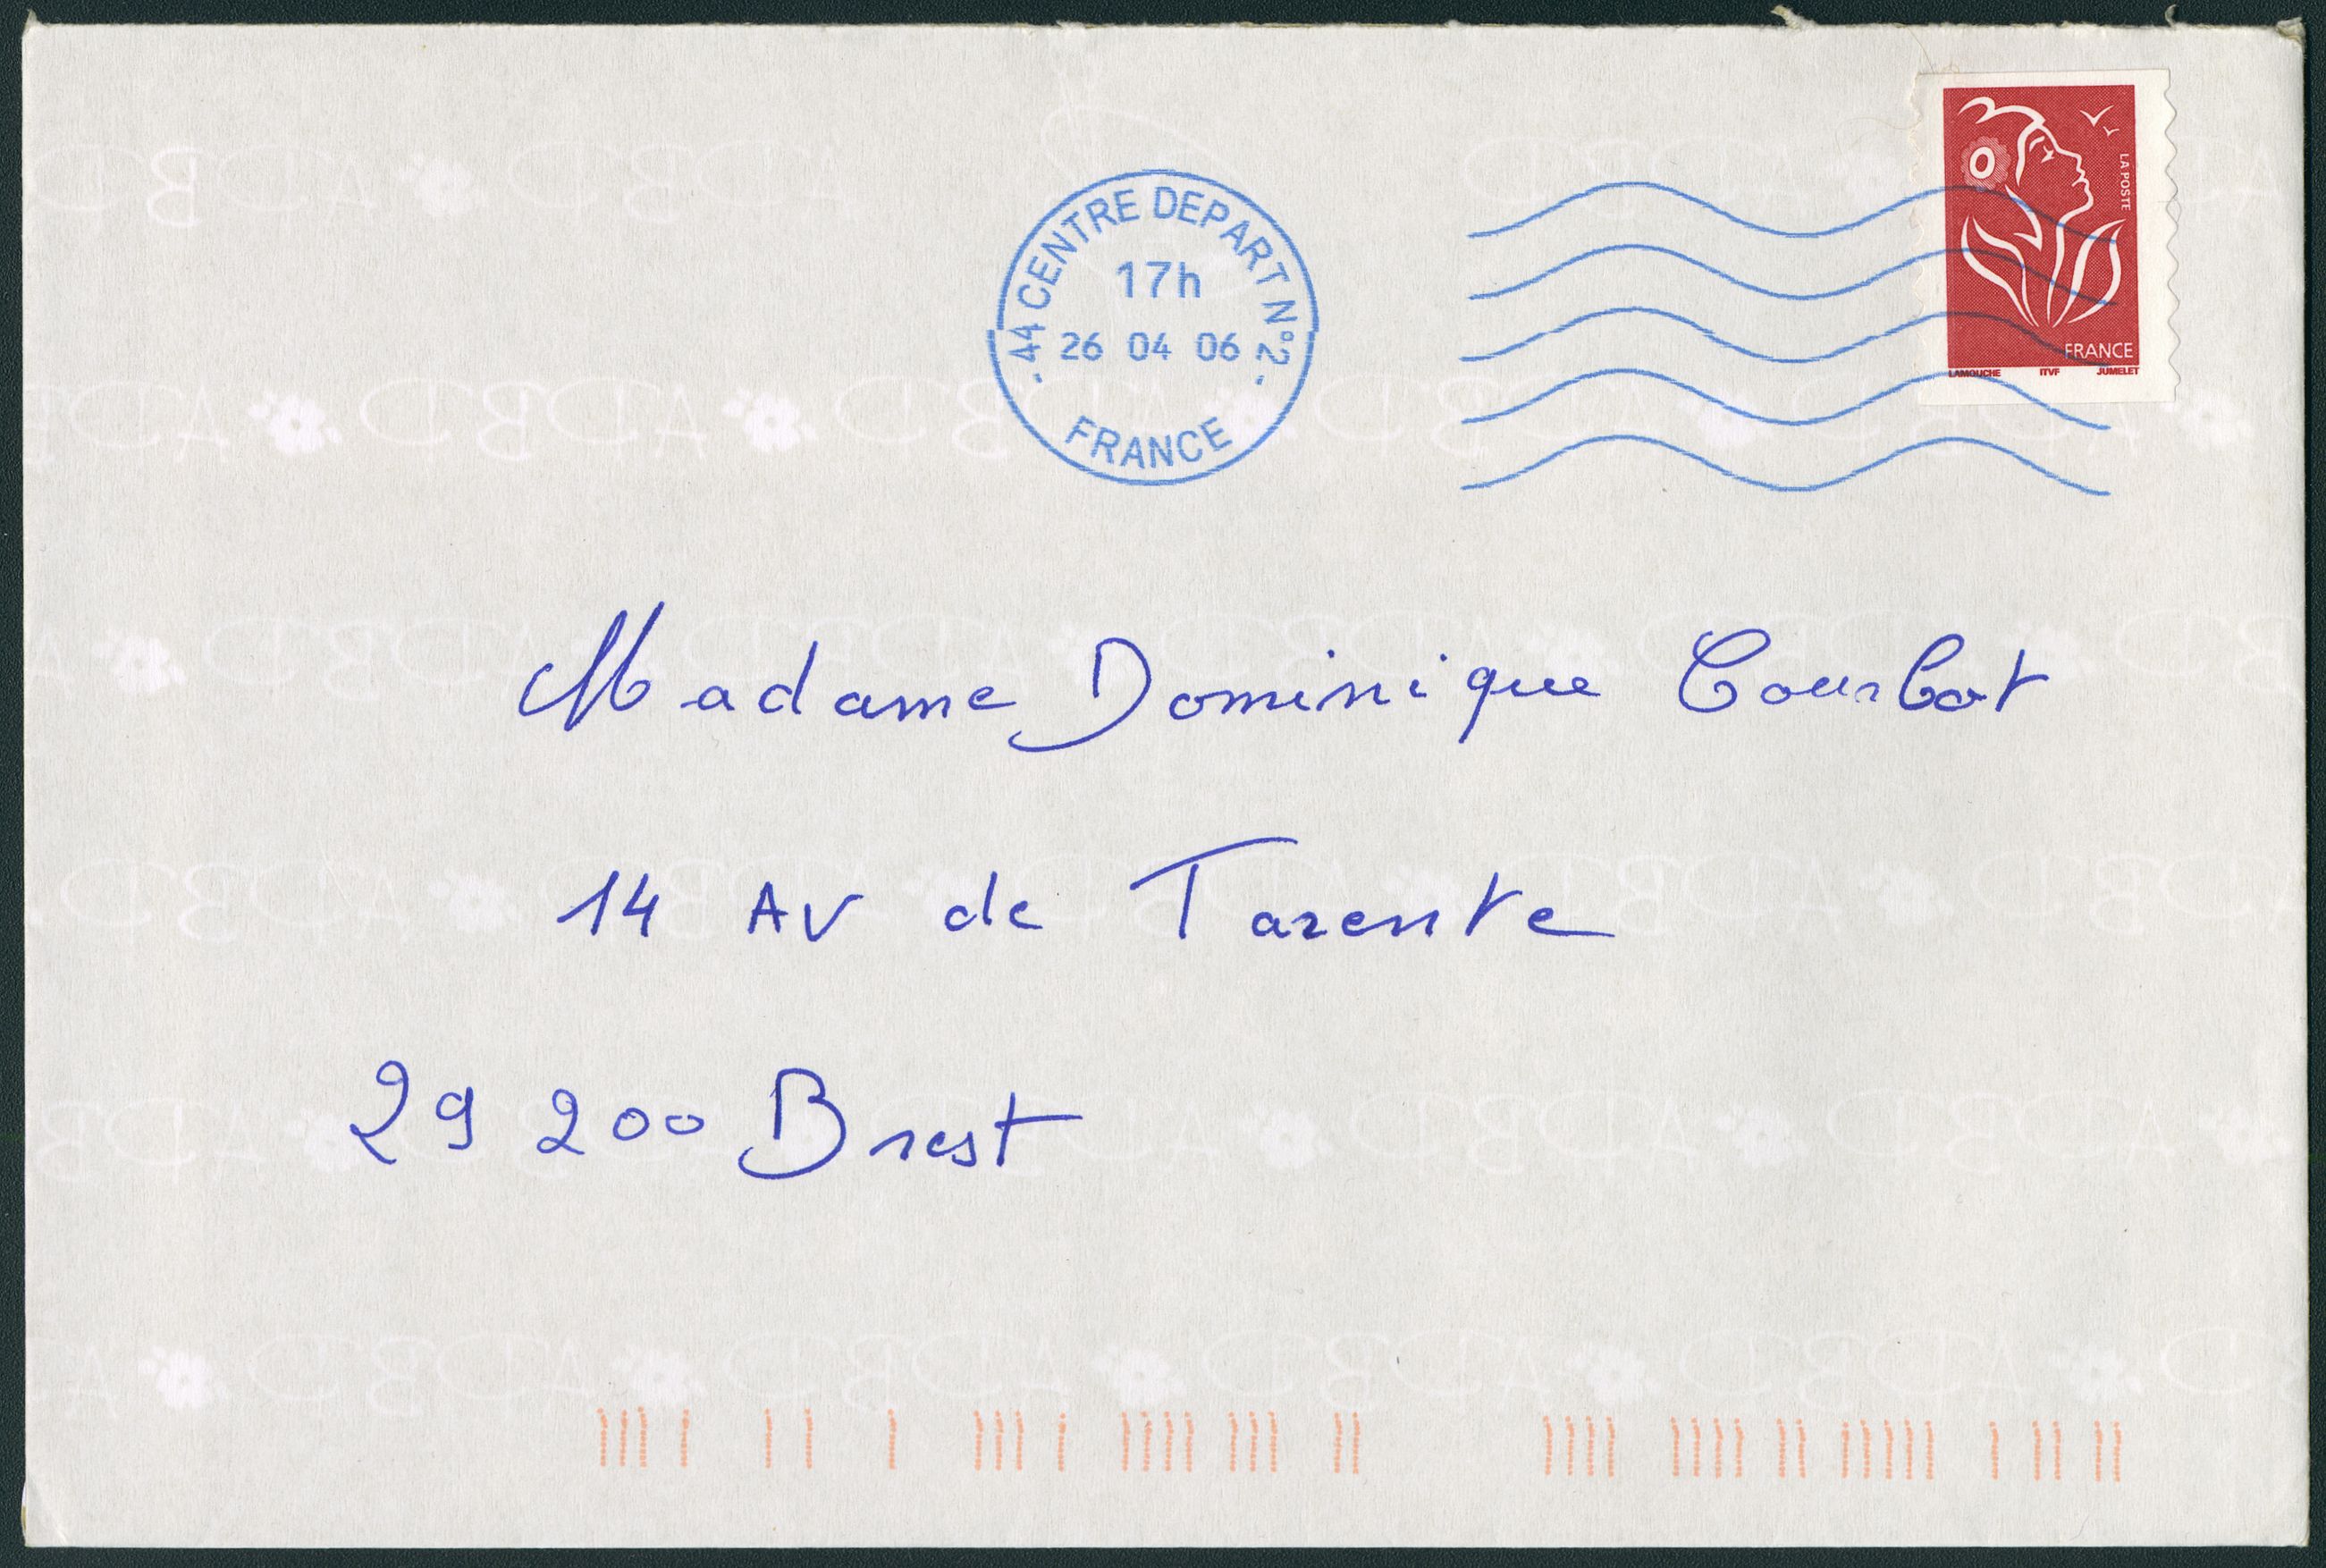 44 CENTRE DEPART N°2
17h
26 04 06
FRANCE
LA POSTE
FRANCE
LAMOUCHE ITVF JUMELET
Madame Dominique Courbot
14 AV de Tarente
29 200 Brest